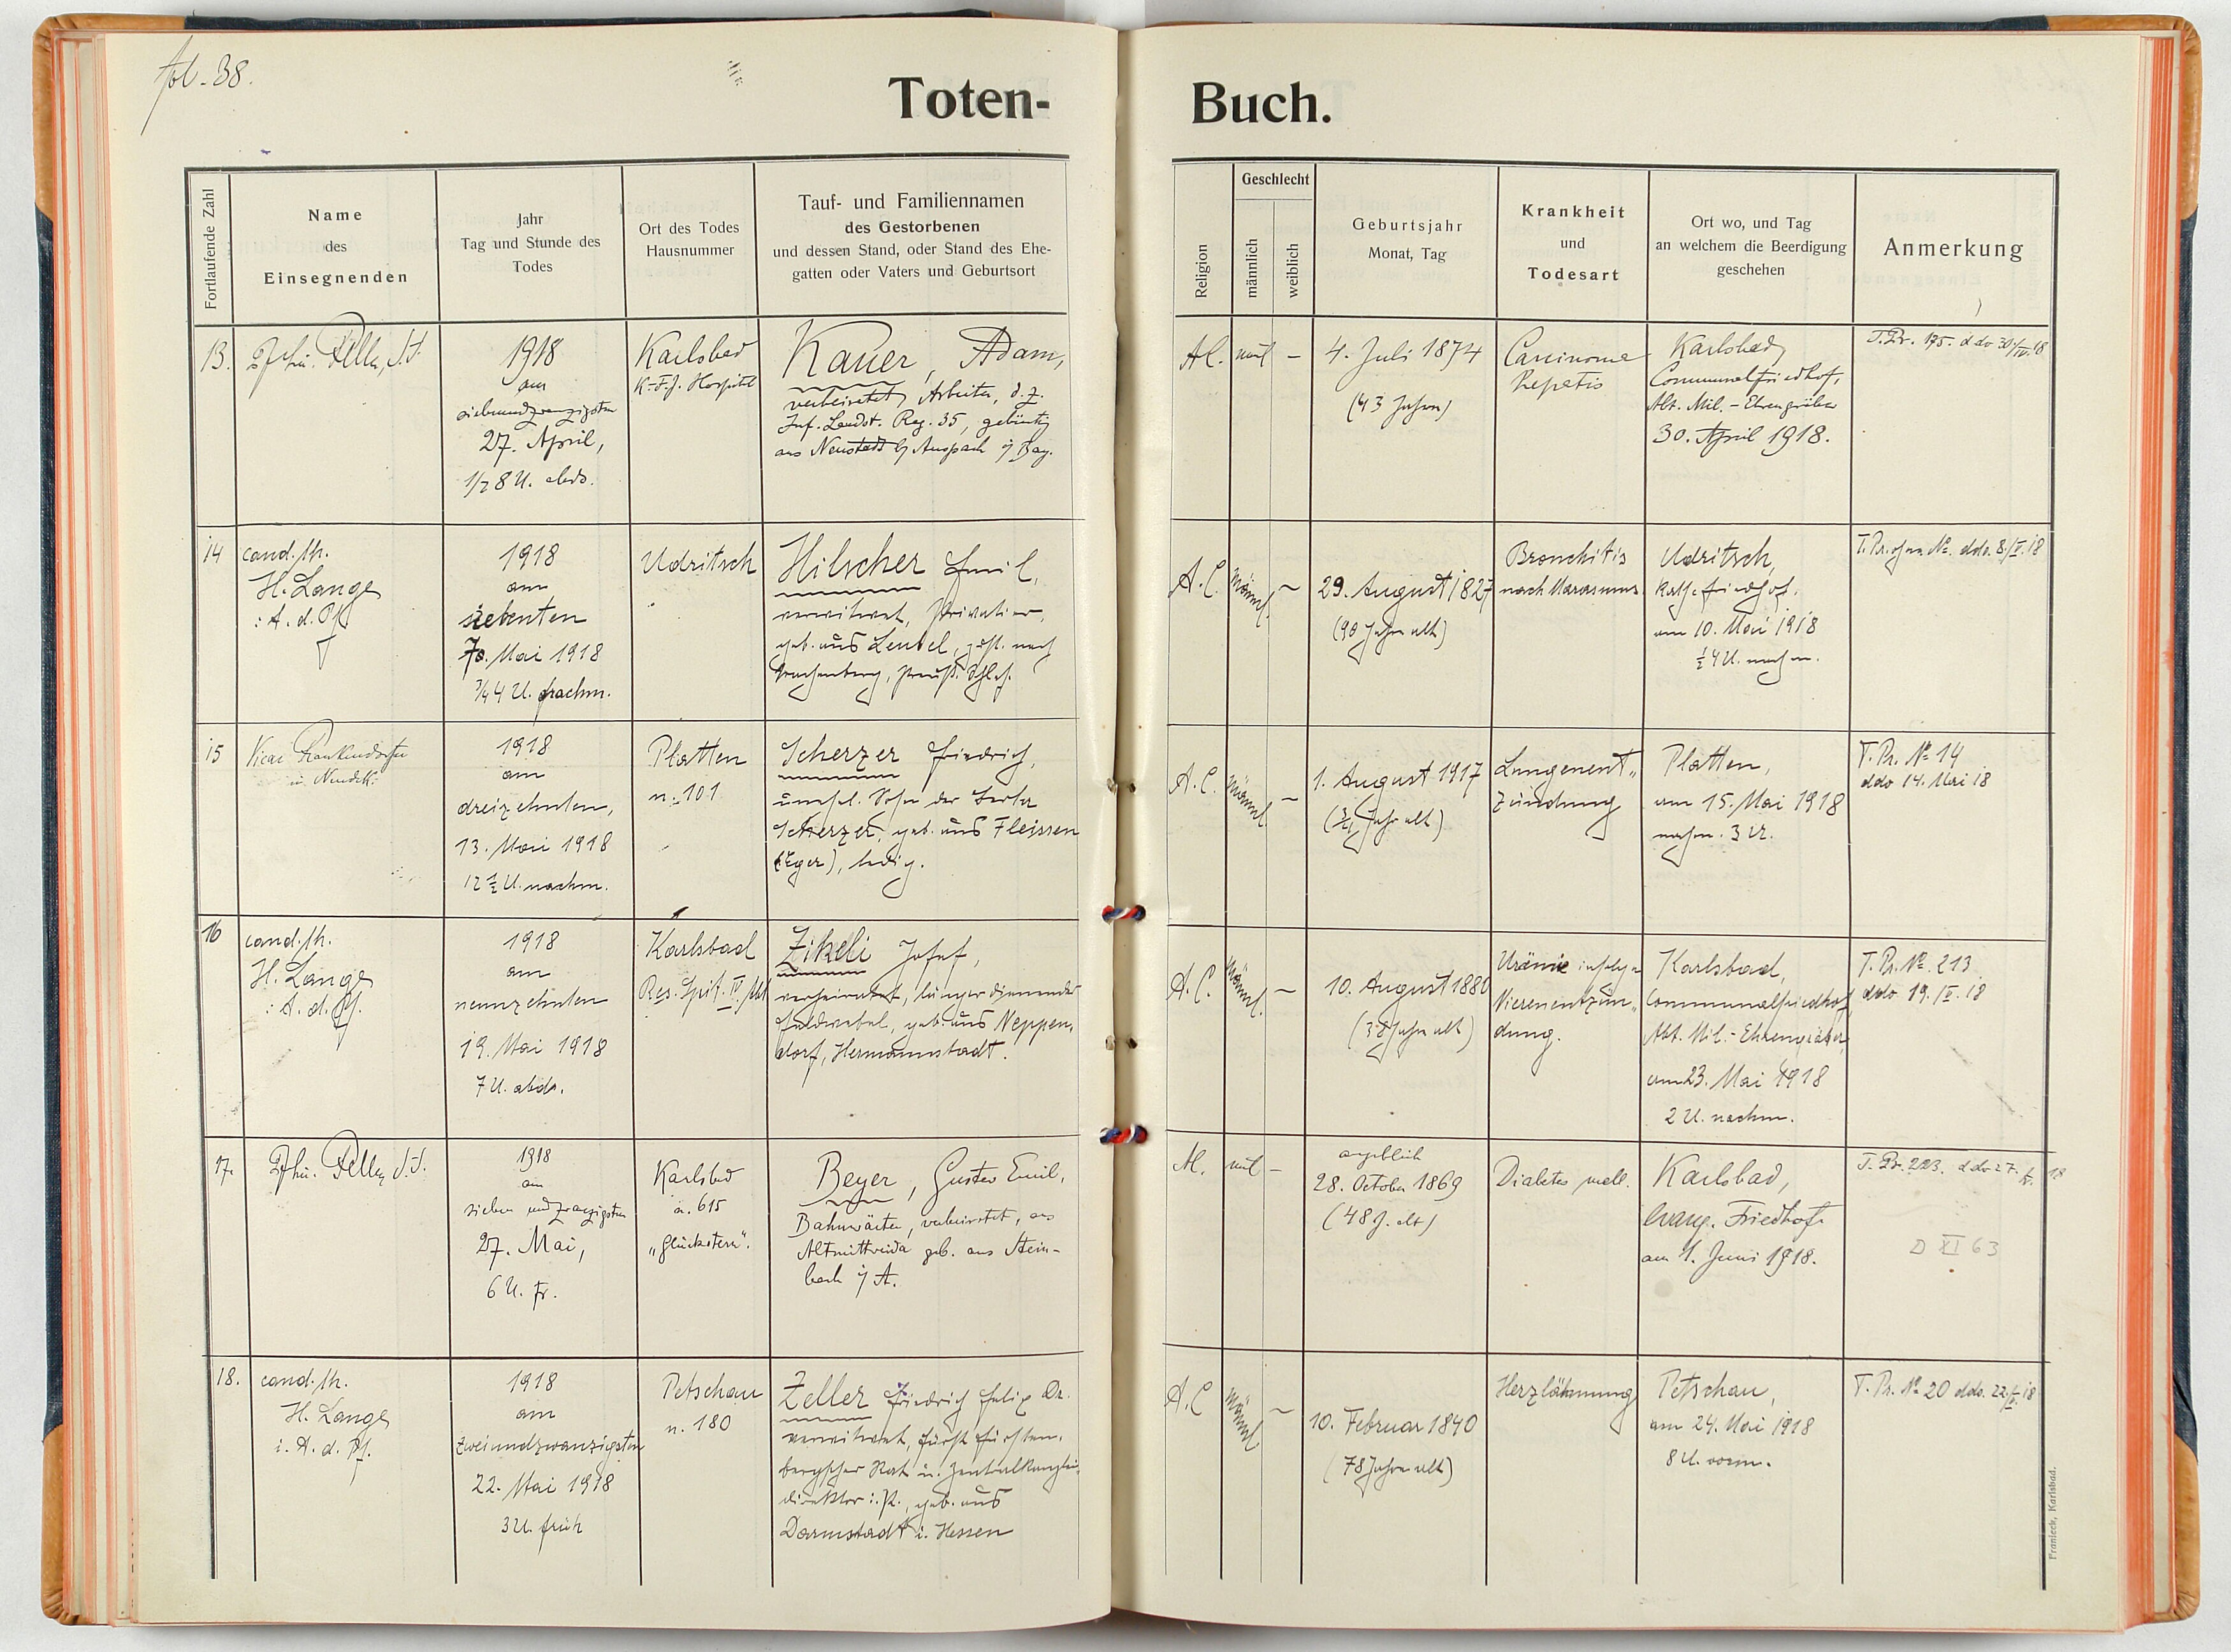 fol. 38.
Toten-
Buch.
Fortlaufende Zahl
Name
des
Einsegnenden
Jahr
Tag und Stunde des
Todes
Ort des Todes
Hausnummer
Tauf- und Familiennamen
des Gestorbenen
und dessen Stand, oder Stand des Ehe-
gatten oder Vaters und Geburtsort
Religion
Geschlecht
männlich
weiblich
Geburtsjahr
Monat, Tag
Krankheit
und
Todesart
Ort wo, und Tag
an welchem die Beerdigung
geschehen
Anmerkung
13.
1918
am
siebenundzwanzigsten
27. April,
1/2 8 U. abds.
Karlsbad
K.-F.-J. Hospital
Kauer, Adam,
verheiratet, Arbeiter, d. z.
Inf. Landst. Reg. 35, gebürtig
aus Neustadt b/ Anspach i/ Bay.
A.C.
ml
–
4. Juli 1874
(43 Jahre)
Carcinoma
hepatis
Karlsbad,
Communalfriedhof,
Abt. Mil.-Ehrengräber
30. April 1918.
T. Pr. 195. ddo 30/IV. 18
14
cand. th.
H. Lange
i. A. d. Pf.
1918
am
siebenten
7. Mai 1918
3/4 4 U. nachm.
Udritsch
Hilscher Emil,
verwitwet, Privatier,
geb. aus Leubel, zust. nach
preuß. Schles.
A.C.
männl.
–
29. August 1827
(90 Jahre alt)
Bronchitis
nach Marasmus.
Udritsch,
kath. Friedhof,
am 10. Mai 1918
1/2 4 U. nachm.
T. Pr. ohne No. ddo. 8./V. 18
15
Vicar
in Neudek.
1918
am
dreizehnten,
13. Mai 1918
12 1/2 U. nachm.
Platten
n. 101
Scherzer Friedrich,
unehel. Sohn der Berta
Scherzer, geb. aus Fleissen
(Eger), ledig.
A.C.
männl.
–
1. August 1917
(3/4 Jahr alt)
Lungenent-
zündung
Platten,
am 15. Mai 1918
nachm. 3 U.
T. Pr. No 14
ddo 14. Mai 18
16
cand. th.
H. Lange
i. A. d. Pf.
1918
am
neunzehnten
19. Mai 1918
7 U. abds.
Karlsbad
Res. Spit. IV. Abt
Zikeli Josef,
verheiratet, länger dienender
Feldwebel, geb. aus Neppen-
dorf, Hermannstadt.
A.C.
männl.
–
10. August 1880
(38 Jahre alt)
Urämie infolge
Nierenentzün-
dung.
Karlsbad,
Communalfriedhof
Abt. Mil.-Ehrengräber
am 23. Mai 1918
2 U. nachm.
T. Pr. No. 213
ddo 19./V. 18
17.
1918
am
siebenundzwanzigsten
27. Mai,
6 U. fr.
Karlsbad
n. 615
„Glückstern“.
Beyer, Gustav Emil,
Bahnwärter, verheiratet, aus
Altmittweida geb. aus Stein-
bach i/ A.
A.C.
ml
–
angeblich
28. October 1869
(48 J. alt)
Diabetes mell.
Karlsbad,
evang. Friedhof
am 1. Juni 1918.
T. Pr. 223. ddo 27. V. 18
D XI 63
18.
cand. th.
H. Lange
i. A. d. Pf.
1918
am
zweiundzwanzigsten
22. Mai 1918
3 U. früh
Petschau
n. 180
Zeller Friedrich Felix Dr.
verwitwet, fürstl. fürsten-
bergscher Rat u. Zentralkanzlei-
direktor i. P., geb. aus
Darmstadt i. Hessen
A.C
männl.
–
10. Februar 1840
(78 Jahre alt)
Herzlähmung
Petschau,
am 24. Mai 1918
8 U. vorm.
T. Pr. No 20 ddo. 22./V. 18
Franieck, Karlsbad.